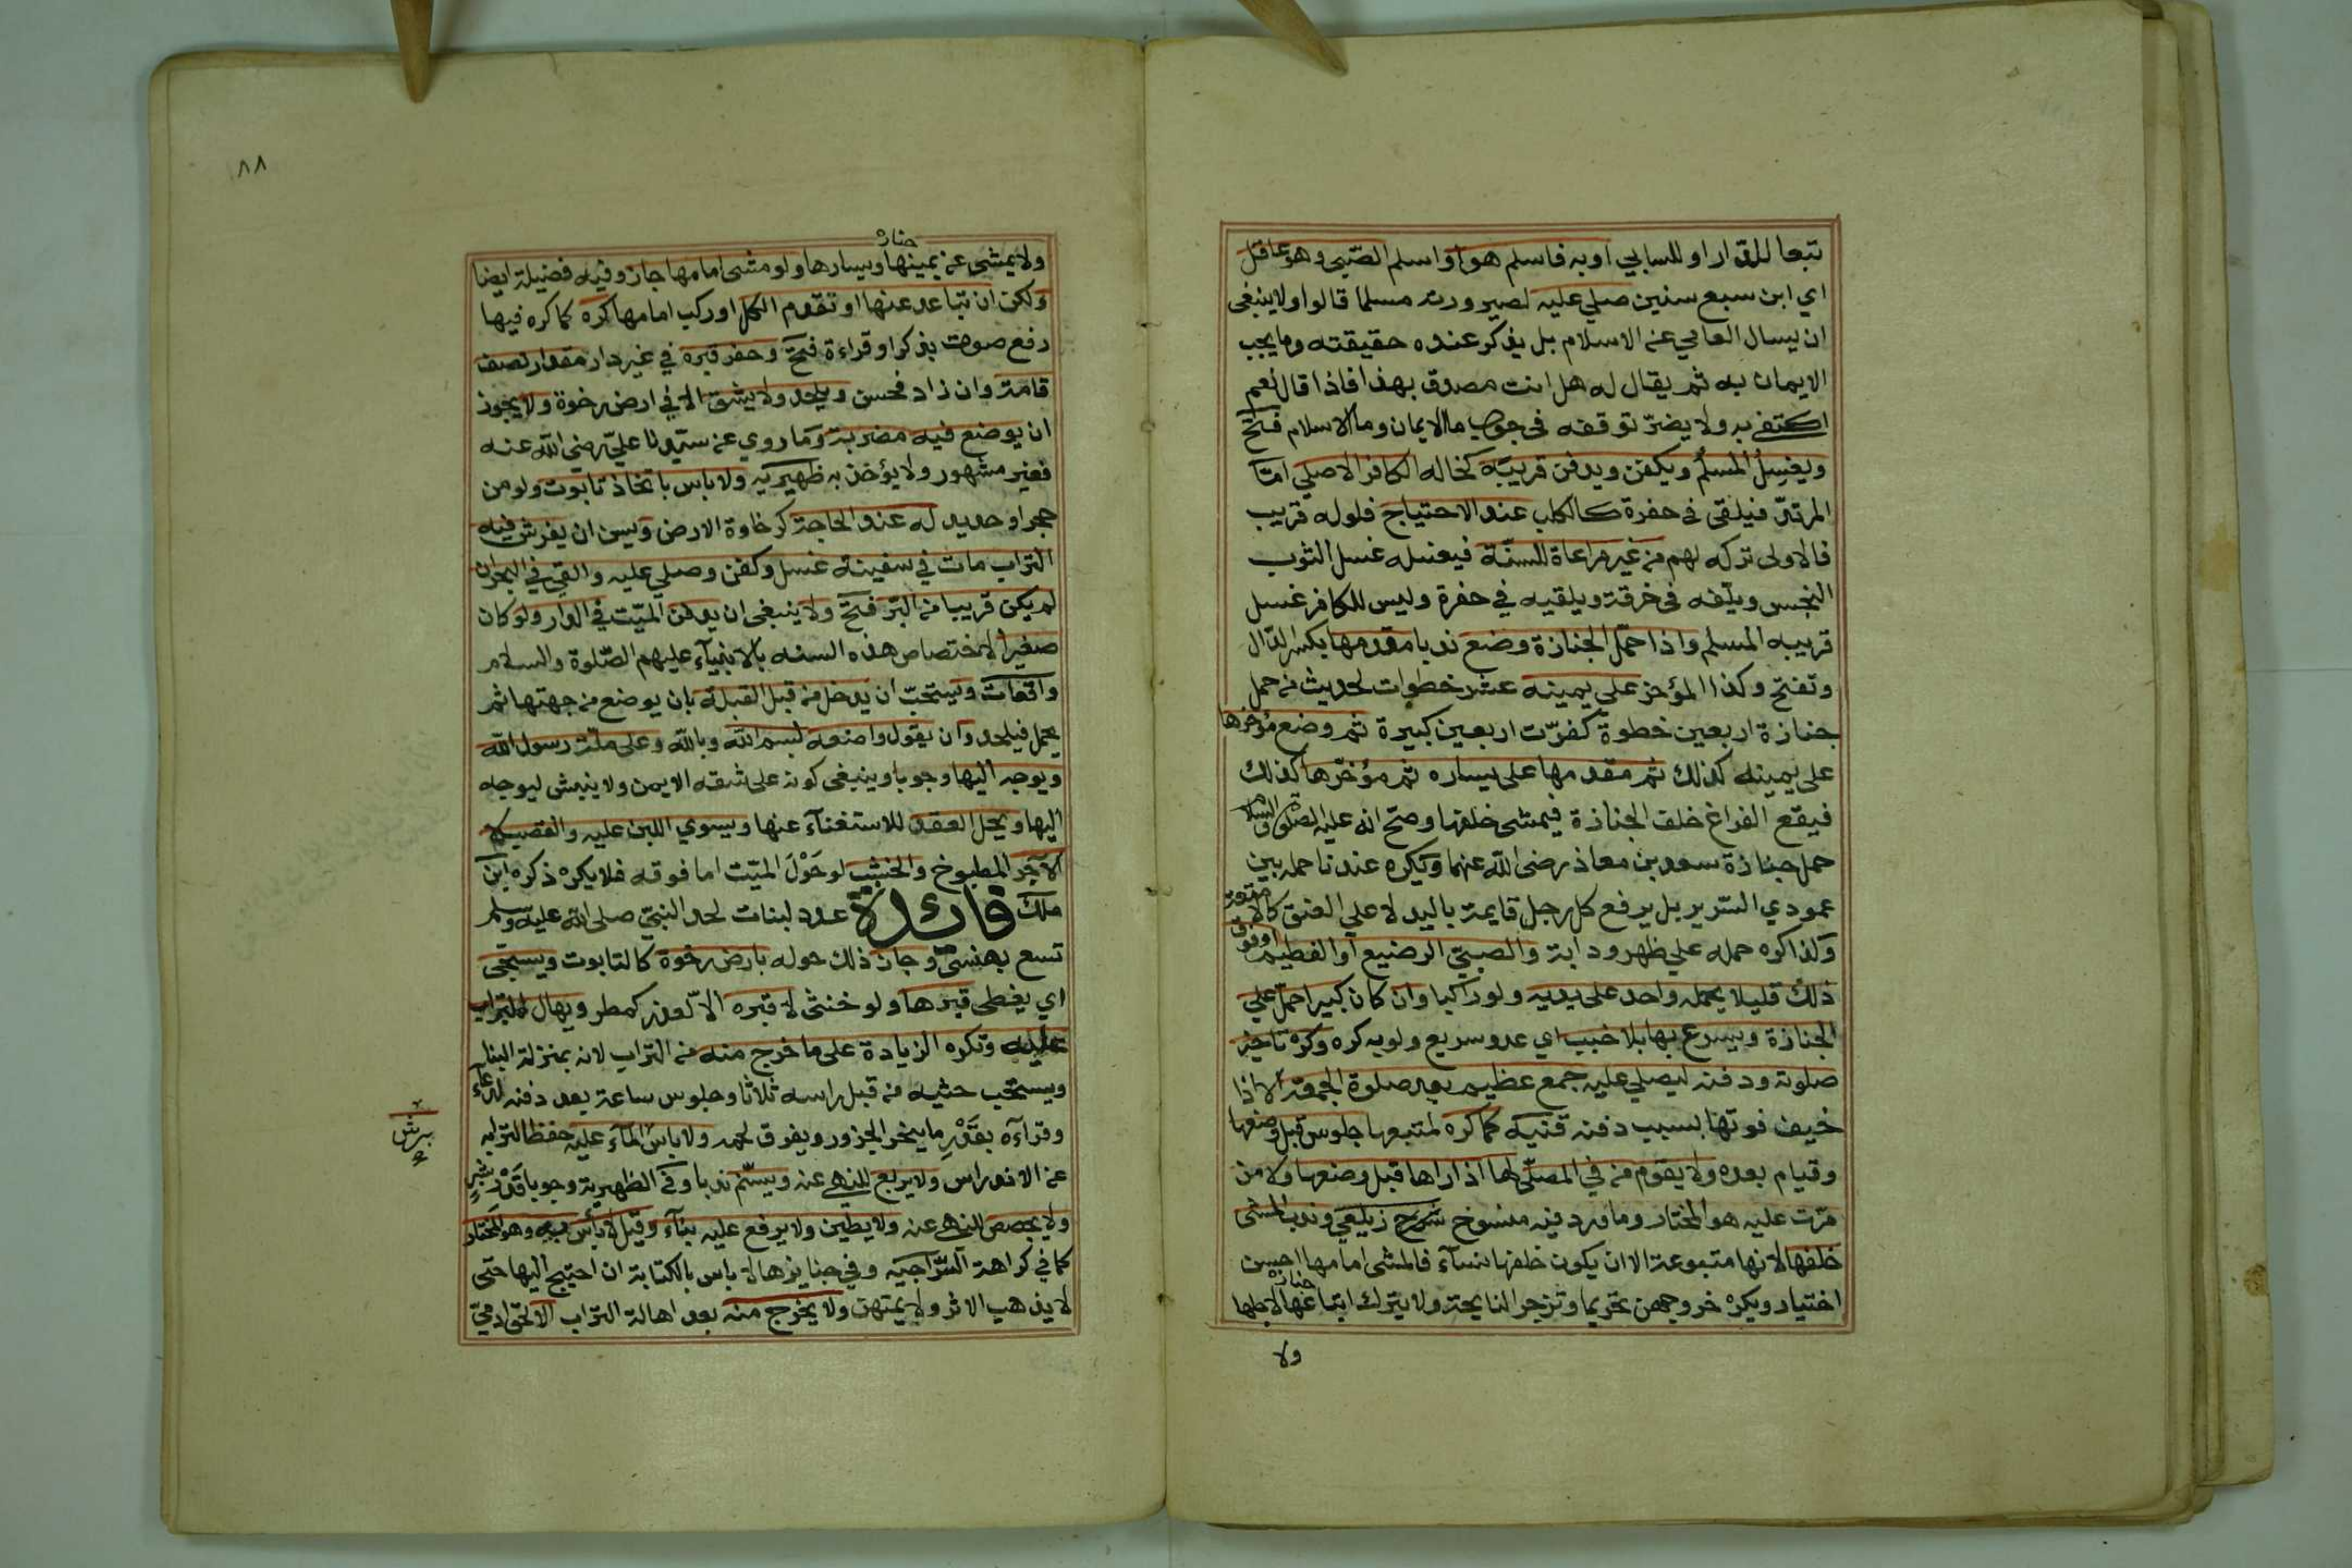 تبعا للدار او للسابي او به فاسلم هو او اسلم الصبي وهو عاقل
اي ابن سبع سنين صلي عليه لصيرورته مسلما قالوا ولا ينبغي
ان يسال العامي عن الاسلام بل يذكر عنده حقيقته وما يجب
الايمان به ثم يقال له هل انت مصدق بهذا فاذا قال نعم
اكتفي به ولا يضرّ توقفه في جواب ما الايمان وما الاسلام فتح
ويغسل المسلم ويكفن ويدفن قريبه كخاله الكافر الاصلي امّا
المرتدّ فيلقى في حفرة كالكلب عند الاحتياج فلوله قريب
فالاولى تركه لهم من غير مراعاة للسنّة فيغسله غسل الثوب
النجس ويلفه في خرقة ويلقيه في حفرة وليس للكافر غسل
قريبه المسلم واذا حمّل الجنازة وضع ندبا مقدمها بكسر الدال
وتفتح وكذا المؤخر على يمينه عشر خطوات لحديث من حمل
جنازة اربعين خطوة كفرّت اربعين كبيرة ثم وضع مؤخرها
على يمينه كذلك ثم مقدمها على يساره ثم مؤخرها كذلك
فيقع الفراغ خلف الجنازة فيمشى خلفها وصح انه عليه الصلوة والسلام
حمل جنازة سعد بن معاذ رضى الله عنهما ويكره عندنا حمله بين
عمودي السرير بل يرفع كل رجل قايمة باليد لا على العنق كالامتعة
وكذا كره حمله على ظهر ودابة والصبيّ الرضيع او الفطيم او فوق
ذلك قليلا يحمله واحد على يديه ولو راكبا وان كان كبيرا حمّل على
الجنازة ويسرع بها بلا خبب اي عدو سريع ولو به كره وكره تاخير
صلوته ودفنه ليصلي عليه جمع عظيم بعد صلوة الجمعة الا اذا
خيف فوتها بسبب دفنه قنيه كما كره لمتبعها جلوس قبل وضعها
وقيام بعده ولا يقوم من في المصلّى لها اذا راها قبل وضعها ولا من
مرّت عليه هو المختار وما ورد فيه منسوخ شرح زيلعي وندب المشى
خلفها لانها متبوعة الا ان يكون خلفها نسآء فالمشى امامها احسن
اختيار ويكره خروجهن تحريما وتزجر النايحة ولا يترك اتباعها لاجلها
ولا
٨٨
ولا يمشى عن يمينها ويسارها ولو مشى امامها جاز وفيه فضيلة ايضا
ولكن ان تباعد عنها او تقدم الكل او ركب امامها كره كما كره فيها
رفع صوت بذكر او قراءة فتح وحفر قبره في غير دار مقدار نصف
قامة وان زاد فحسن ويلحد ولا يشق الا في ارض رخوة ولا يجوز
ان يوضع فيه مضربة وما روي عن سيدنا عليّ رضى الله عنه
فغير مشهور ولا يؤخذ به ظهيريه ولا باس باتخاذ تابوت ولو من
حجر او حديد له عند الحاجة كرخاوة الارض ويسن ان يفرش فيه
التراب مات في سفينة غسل وكفن وصلي عليه والقي في البحر ان
لم يكن قريبا من البرّ فتح ولا ينبغي ان يدفن الميّت في الدار ولو كان
صغيرا لاختصاص هذه السنه بالانبيآء عليهم الصّلوة والسلام
واقعات ويستحبّ ان يدخل من قبل القبلة بان يوضع من جهتها ثم
يحمل فيلحد وان يقول واضعه بسم الله وبالله وعلى ملّة رسول الله
ويوجه اليها وجوبا وينبغي كونه على شقه الايمن ولا ينبش ليوجه
اليها ويحل العقد للاستغنآء عنها ويسوي اللبن عليه والقصب لا
الآجر المطبوخ والخشب لو حَوْلَ الميّت اما فوقه فلا يكره ذكره ابن
ملك فائدة عدد لبنات لحد النبيّ صلى الله عليه وسلم
تسع بهنسى وجاز ذلك حوله بارض رخوة كالتابوت ويسجى
اي يغطى قبرها ولو خنثى لا قبره الا لعذر كمطر ويهال التراب
عليه وتكره الزيادة على ما خرج منه من التراب لانه بمنزلة البنا
ويستحب حثيه من قبل راسه ثلاثا وجلوس ساعة بعد دفنه لدعآء
وقرآءة بقَدْرِ ما ينحر الجزور ويفرق لحمه ولا باس المآء عليه حفظا لترابه
عن الاندراس ولا يربع للنهي عنه ويسنّم ندبا وفي الظهيرية وجوبا قدْر شبرٍ
ولا يجصص للنهي عنه ولا يطين ولا يرفع عليه بنآء وقيل لا بأس به وهو المختار
كما في كراهة السّراجيه وفي جنايزها لا باس بالكتابة ان احتيج اليها حتى
لا يذهب الاثر ولا يمتهن ولا يخرج منه بعد اهالة التراب الا لحق ادميّ
برش